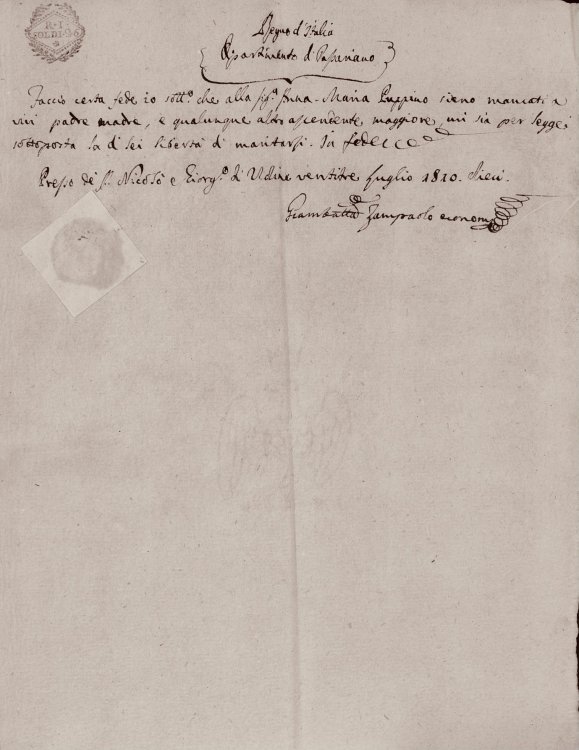 R·I
SOLDI·9·6
Regno d'Italia
Dipartimento di Passariano
Faccio certa fede io sott.º che alla sig.ª Anna-Maria Puppino sieno mancati a
vivi padre madre, e qualunque altro ascendente, maggiore, cui sia per legge
sottoposta la di lei libertà di maritarsi. In fede
Presso de' S. Nicolò e Giorg.º di Udine ventitre Luglio 1810. dieci.
Giambatta Zampaolo economo